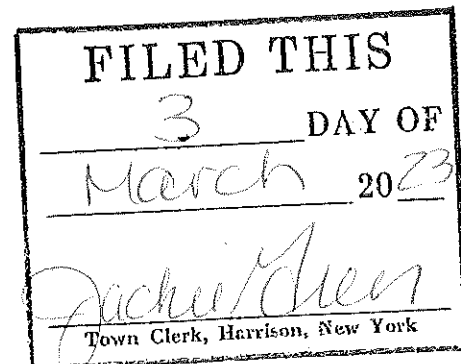 FILED THIS
3 DAY OF
March 2023
Jackie
Town Clerk, Harrison, New York